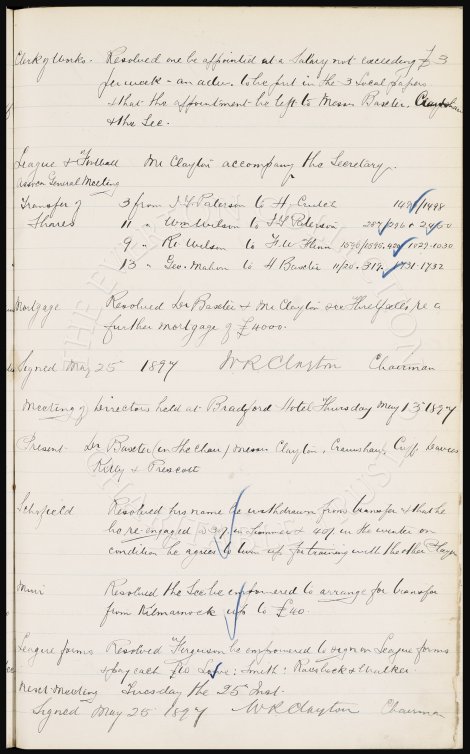 Clerk of Works. Resolved one be appointed at a Salary not exceeding £3
per week - an advr. to be put in the 3 Local papers
& that the appointment be left to Messrs Baxter, Crawshaw
& the Sec.
League & Football Mr Clayton accompany the Secretary.
Assocn General Meeting
Transfer of 3 from J L Paterson to H. 1498
Shares 11 " Wm Wilson to J L Paterson
9 " Rt Wilson to F. W. 1029-1030
13 " Geo. Mahon to H Baxter 11/20 1731-1732
Mortgage Resolved Dr Baxter & Mr Clayton see Threlfall's re a
further mortgage of £4000.
Signed May 25 1897 W R Clayton Chairman
Meeting of Directors held at Bradford Hotel Thursday May 13 1897
Present Dr Baxter (in the Chair) Messrs Clayton, Crawshaw, Cuff, Davies
Kirby & Prescott
Schofield Resolved his name be withdrawn from transfer & that he
be re-engaged @ 30/- in Summer & 40/- in the winter on
condition he agrees to turn up for training with the other players
Muir Resolved the Sec be empowered to arrange for transfer
from Kilmarnock up to £40.
League forms Resolved Ferguson be empowered to sign on League forms
& pay each £10 : Smith : & Walker.
Next Meeting Tuesday the 25 Inst.
Signed May 25 1897 W R Clayton Chairman